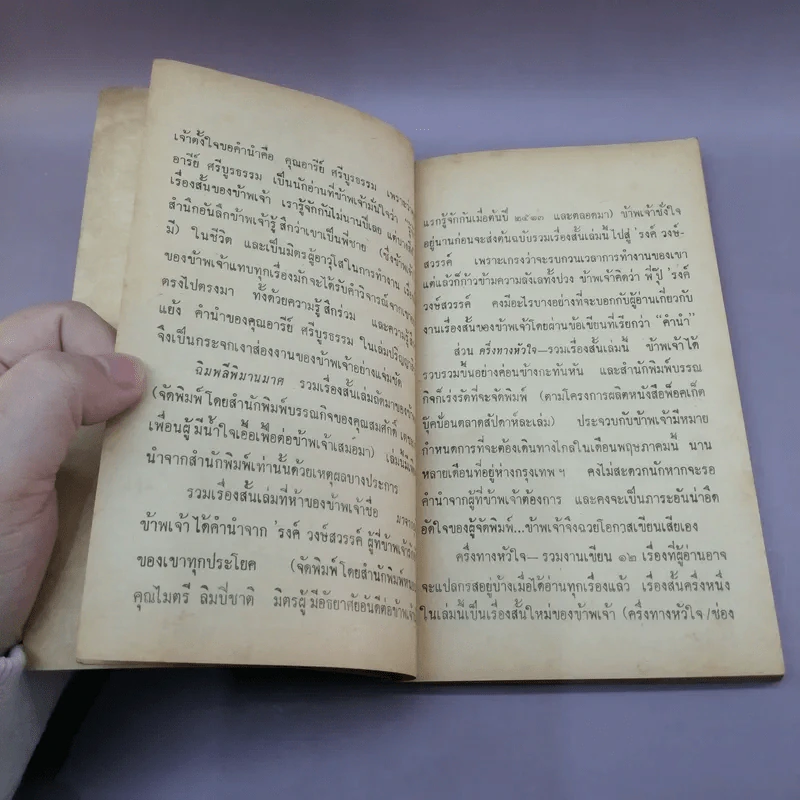 เจ้าตั้งใจขอคำนำคือ คุณอารีย์ ศรีบูรธรรม เพราะว่า
อารีย์ ศรีบูรธรรม เป็นนักอ่านที่ข้าพเจ้ามั่นใจว่า
เรื่องสั้นของข้าพเจ้า เรารู้จักกันไม่นานปีเลย
สำนึกอันลึกข้าพเจ้ารู้สึกว่าเขาเป็นพี่ชาย (ซึ่งข้าพเจ้า
มี) ในชีวิต และเป็นมิตรผู้อาวุโสในการทำงาน
ของข้าพเจ้าแทบทุกเรื่องมักจะได้รับคำวิจารณ์จาก
ตรงไปตรงมา ทั้งด้วยความรู้สึกร่วม และความรู้สึก
แย้ง คำนำของคุณอารีย์ ศรีบูรธรรม ในเล่ม
จึงเป็นกระจกเงาส่องงานของข้าพเจ้าอย่างแจ่มชัด
ฉิมพลีพิมานมาศ รวมเรื่องสั้นเล่มถัดมาของ
(จัดพิมพ์โดยสำนักพิมพ์บรรณกิจของคุณสมศักดิ์
เพื่อนผู้มีน้ำใจเอื้อเฟื้อต่อข้าพเจ้าเสมอมา)
นำจากสำนักพิมพ์เท่านั้นด้วยเหตุผลบางประการ
รวมเรื่องสั้นเล่มที่ห้าของข้าพเจ้าชื่อ
ข้าพเจ้าได้คำนำจาก 'รงค์ วงษ์สวรรค์ ผู้ที่ข้าพเจ้า
ของเขาทุกประโยค (จัดพิมพ์โดยสำนักพิมพ์
คุณไมตรี ลิมปิชาติ มิตรผู้มีอัธยาศัยอันดีต่อข้าพเจ้า
แรกรู้จักกันเมื่อต้นปี ๒๕๑๓ และตลอดมา) ข้าพเจ้าชั่งใจ
อยู่นานก่อนจะส่งต้นฉบับรวมเรื่องสั้นเล่มนี้ไปสู่ 'รงค์ วงษ์-
สวรรค์ เพราะเกรงว่าจะรบกวนเวลาการทำงานของเขา
แต่แล้วก็ก้าวข้ามความลังเลทั้งปวง ข้าพเจ้าคิดว่า พี่ปุ๊ 'รงค์
วงษ์สวรรค์ คงมีอะไรบางอย่างที่จะบอกกับผู้อ่านเกี่ยวกับ
งานเรื่องสั้นของข้าพเจ้าโดยผ่านข้อเขียนที่เรียกว่า "คำนำ"
ส่วน ครึ่งทางหัวใจ—รวมเรื่องสั้นเล่มนี้ ข้าพเจ้าได้
รวบรวมขึ้นอย่างค่อนข้างกะทันหัน และสำนักพิมพ์บรรณ
กิจก็เร่งรัดที่จะจัดพิมพ์ (ตามโครงการผลิตหนังสือพ็อคเก็ต
บุ๊คป้อนตลาดสัปดาห์ละเล่ม) ประจวบกับข้าพเจ้ามีหมาย
กำหนดการที่จะต้องเดินทางไกลในเดือนพฤษภาคมนี้ นาน
หลายเดือนที่อยู่ห่างกรุงเทพฯ คงไม่สะดวกนักหากจะรอ
คำนำจากผู้ที่ข้าพเจ้าต้องการ และคงจะเป็นภาระอันน่าอึด
อัดใจของผู้จัดพิมพ์...ข้าพเจ้าจึงฉวยโอกาสเขียนเสียเอง
ครึ่งทางหัวใจ—รวมงานเขียน ๑๒ เรื่องที่ผู้อ่านอาจ
จะแปลกรสอยู่บ้างเมื่อได้อ่านทุกเรื่องแล้ว เรื่องสั้นครึ่งหนึ่ง
ในเล่มนี้เป็นเรื่องสั้นใหม่ของข้าพเจ้า (ครึ่งทางหัวใจ/ช่อง